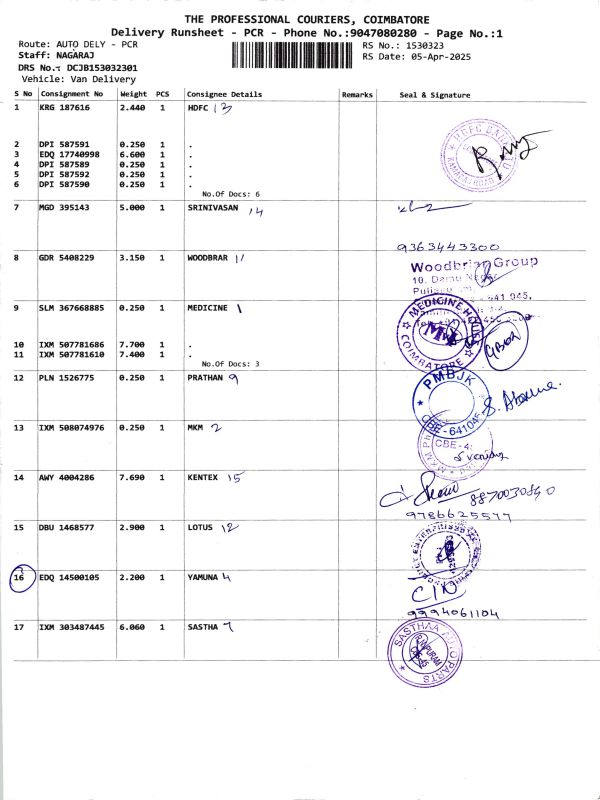 THE PROFESSIONAL COURIERS, COIMBATORE
Delivery Runsheet - PCR - Phone No.:9047080280 - Page No.:1
Route: AUTO DELY - PCR
RS No.: 1530323
Staff: NAGARAJ
RS Date: 05-Apr-2025
DRS No.: DCJB153032301
Vehicle: Van Delivery
S No Consignment No Weight PCS Consignee Details Remarks Seal & Signature
1 KRG 187616 2.440 1 HDFC 13
2 DPI 587591 0.250 1 .
3 EDQ 17740998 6.600 1 .
4 DPI 587589 0.250 1 .
5 DPI 587592 0.250 1 .
6 DPI 587590 0.250 1 .
No.Of Docs: 6
HDFC BANK
7 MGD 395143 5.000 1 SRINIVASAN 14
9363443300
8 GDR 5408229 3.150 1 WOODBRAR 11
Woodbriar Group
9 SLM 367668885 0.250 1 MEDICINE 1
10 IXM 507781686 7.700 1 .
11 IXM 507781610 7.400 1 .
No.Of Docs: 3
MEDICINE
COIMBATORE
12 PLN 1526775 0.250 1 PRATHAN 9
PMBJK
13 IXM 508074976 0.250 1 MKM 2
14 AWY 4004286 7.690 1 KENTEX 15
9786625577
15 DBU 1468577 2.900 1 LOTUS 12
16 EDQ 14500105 2.200 1 YAMUNA 4
9994061104
17 IXM 303487445 6.060 1 SASTHA 7
SASTHAA AUTO PARTS